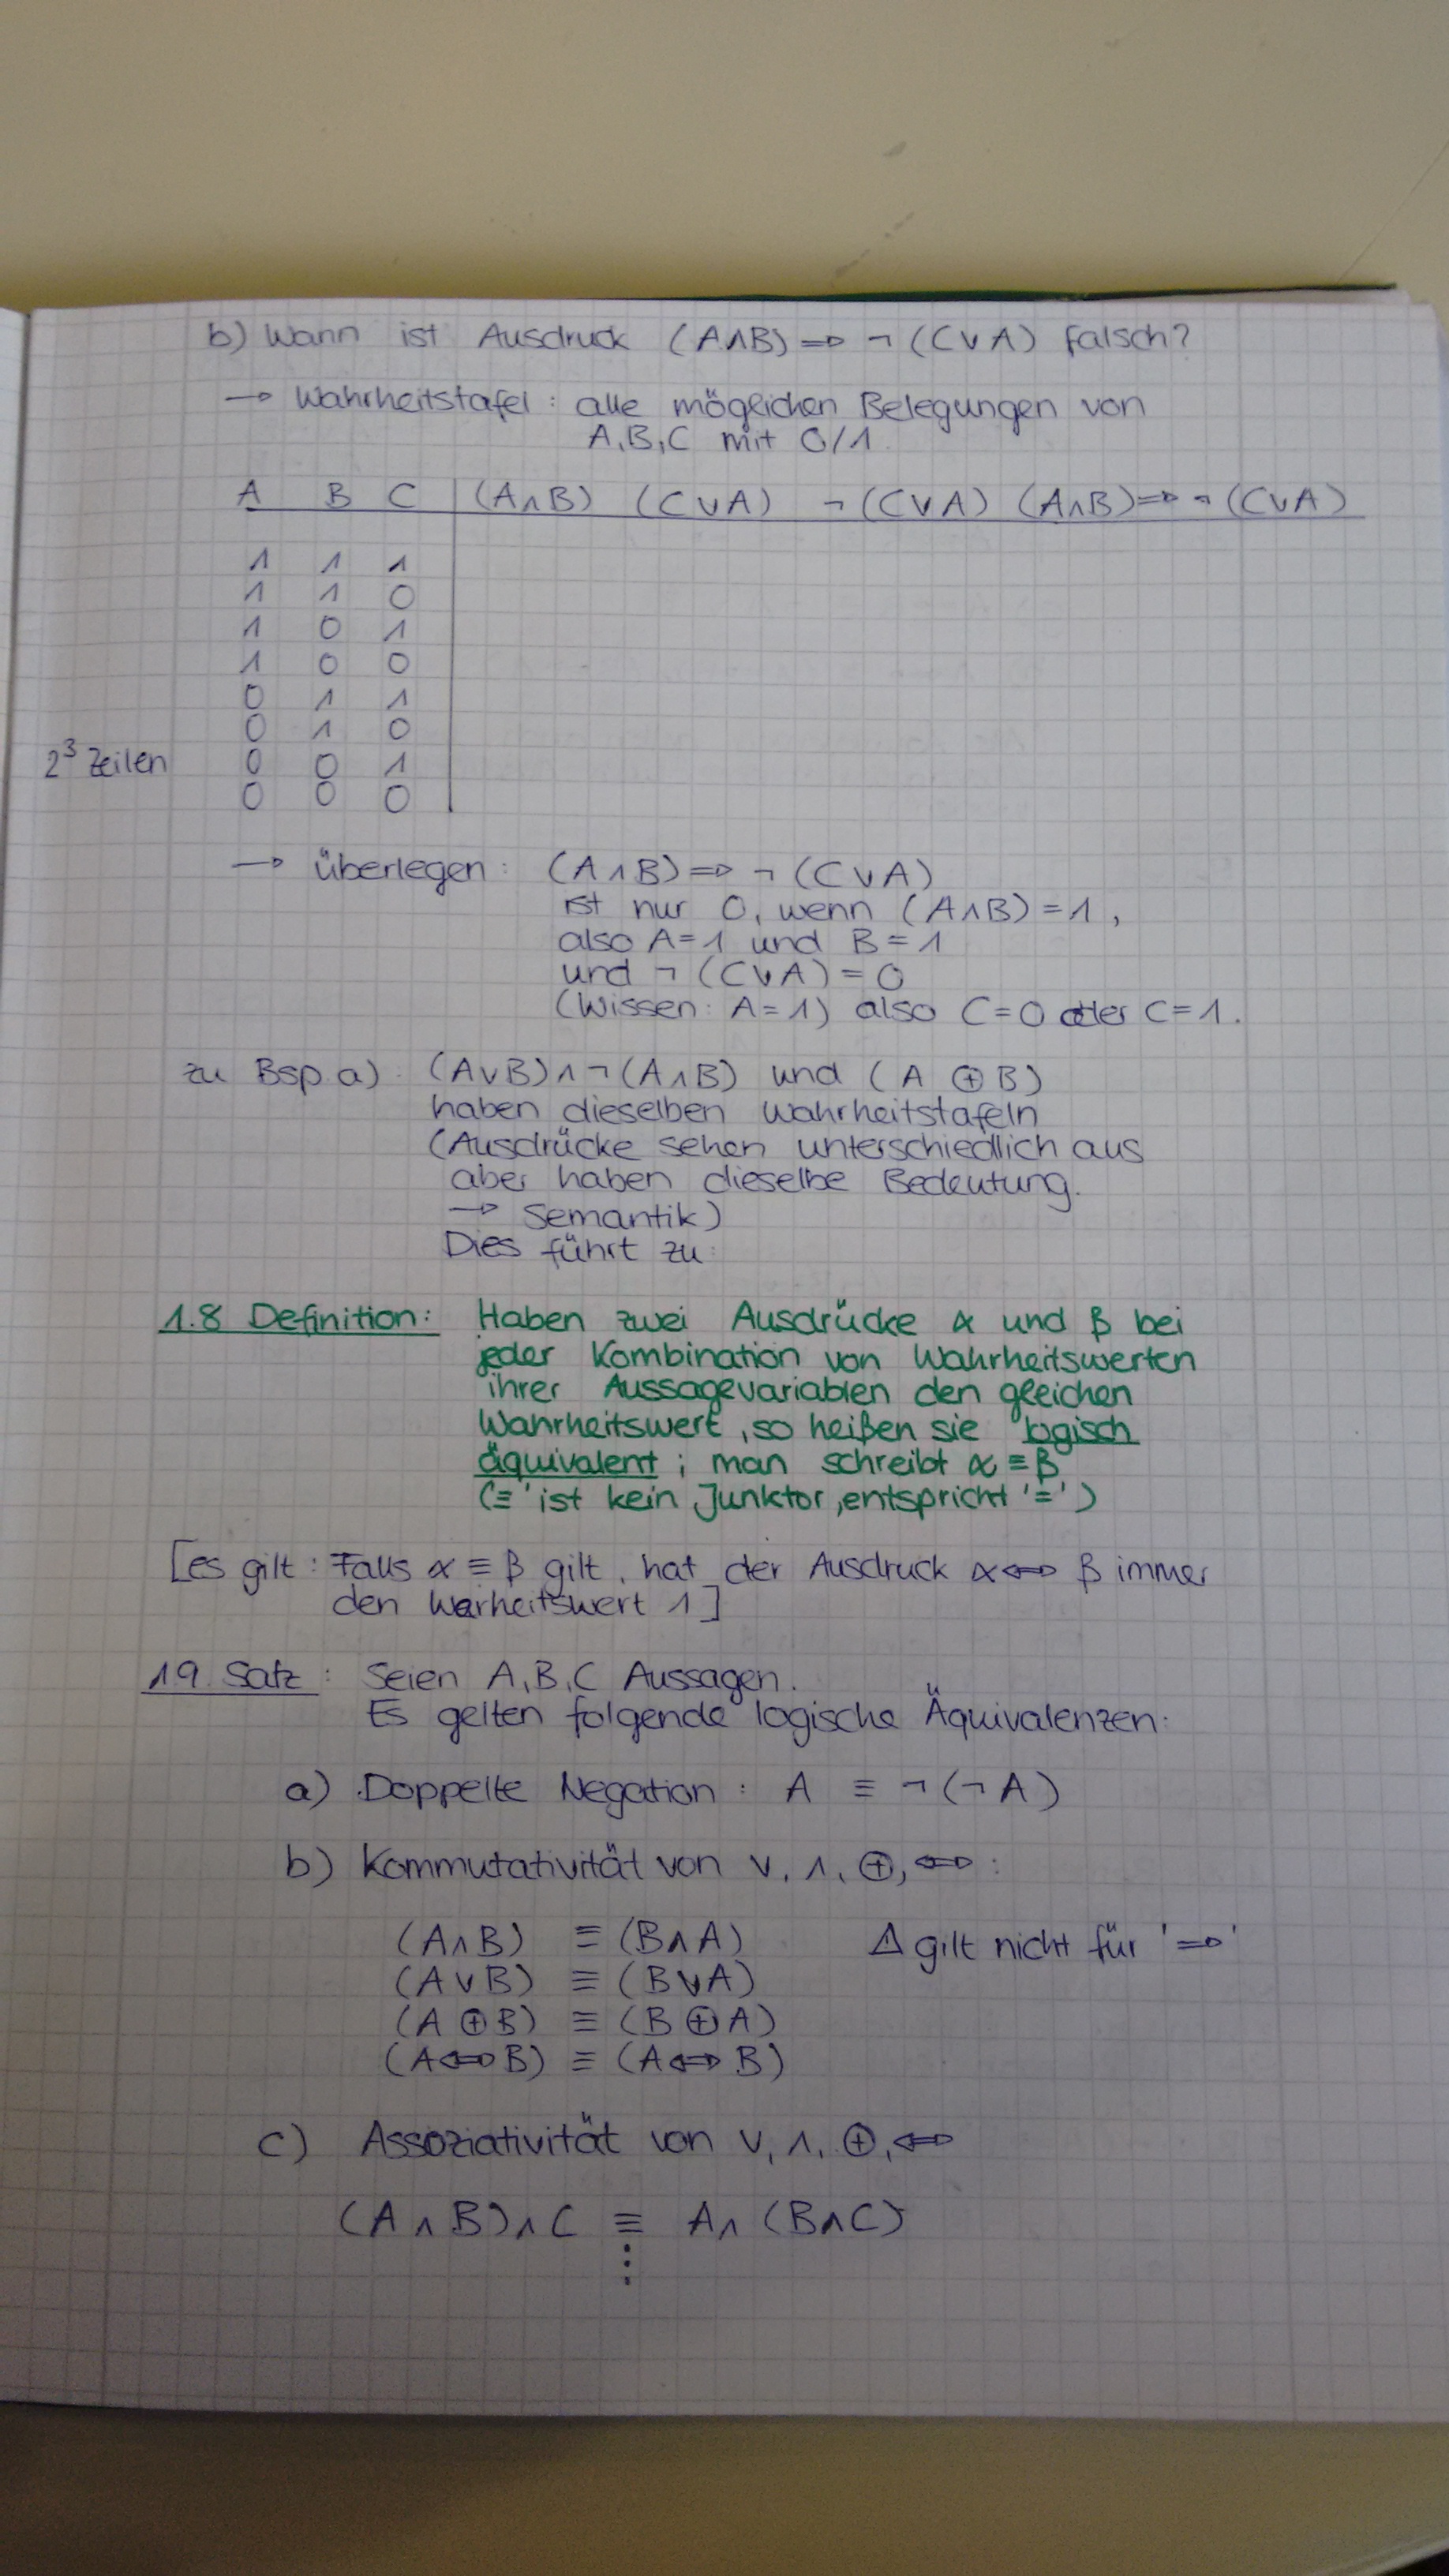 b) Wann ist Ausdruck (A∧B) ⇒ ¬ (C∨A) falsch?
→ Wahrheitstafel : alle möglichen Belegungen von
A,B,C mit 0/1.
A B C | (A∧B) (C∨A) ¬(C∨A) (A∧B)⇒¬(C∨A)
1 1 1
1 1 0
1 0 1
1 0 0
0 1 1
0 1 0
2³ Zeilen 0 0 1
0 0 0
→ überlegen: (A∧B) ⇒ ¬ (C∨A)
ist nur 0, wenn (A∧B) = 1 ,
also A=1 und B=1
und ¬ (C∨A) = 0
(Wissen: A=1) also C=0 oder C=1.
zu Bsp. a) (A∨B)∧¬(A∧B) und (A ⊕ B)
haben dieselben Wahrheitstafeln
(Ausdrücke sehen unterschiedlich aus
aber haben dieselbe Bedeutung.
→ Semantik)
Dies führt zu:
1.8 Definition: Haben zwei Ausdrücke α und β bei
jeder Kombination von Wahrheitswerten
ihrer Aussagevariablen den gleichen
Wahrheitswert, so heißen sie logisch
äquivalent ; man schreibt α ≡ β
(≡' ist kein Junktor, entspricht '=')
[es gilt : Falls α ≡ β gilt, hat der Ausdruck α⇔β immer
den Warheitswert 1]
19. Satz : Seien A,B,C Aussagen.
Es gelten folgende logische Äquivalenzen:
a) Doppelte Negation : A ≡ ¬(¬A)
b) Kommutativität von ∨, ∧, ⊕, ⇔ :
(A∧B) ≡ (B∧A) ⚠ gilt nicht für '⇒'
(A∨B) ≡ (B∨A)
(A⊕B) ≡ (B⊕A)
(A⇔B) ≡ (A⇔B)
c) Assoziativität von ∨, ∧, ⊕, ⇔
(A∧B)∧C ≡ A∧(B∧C)
⋮